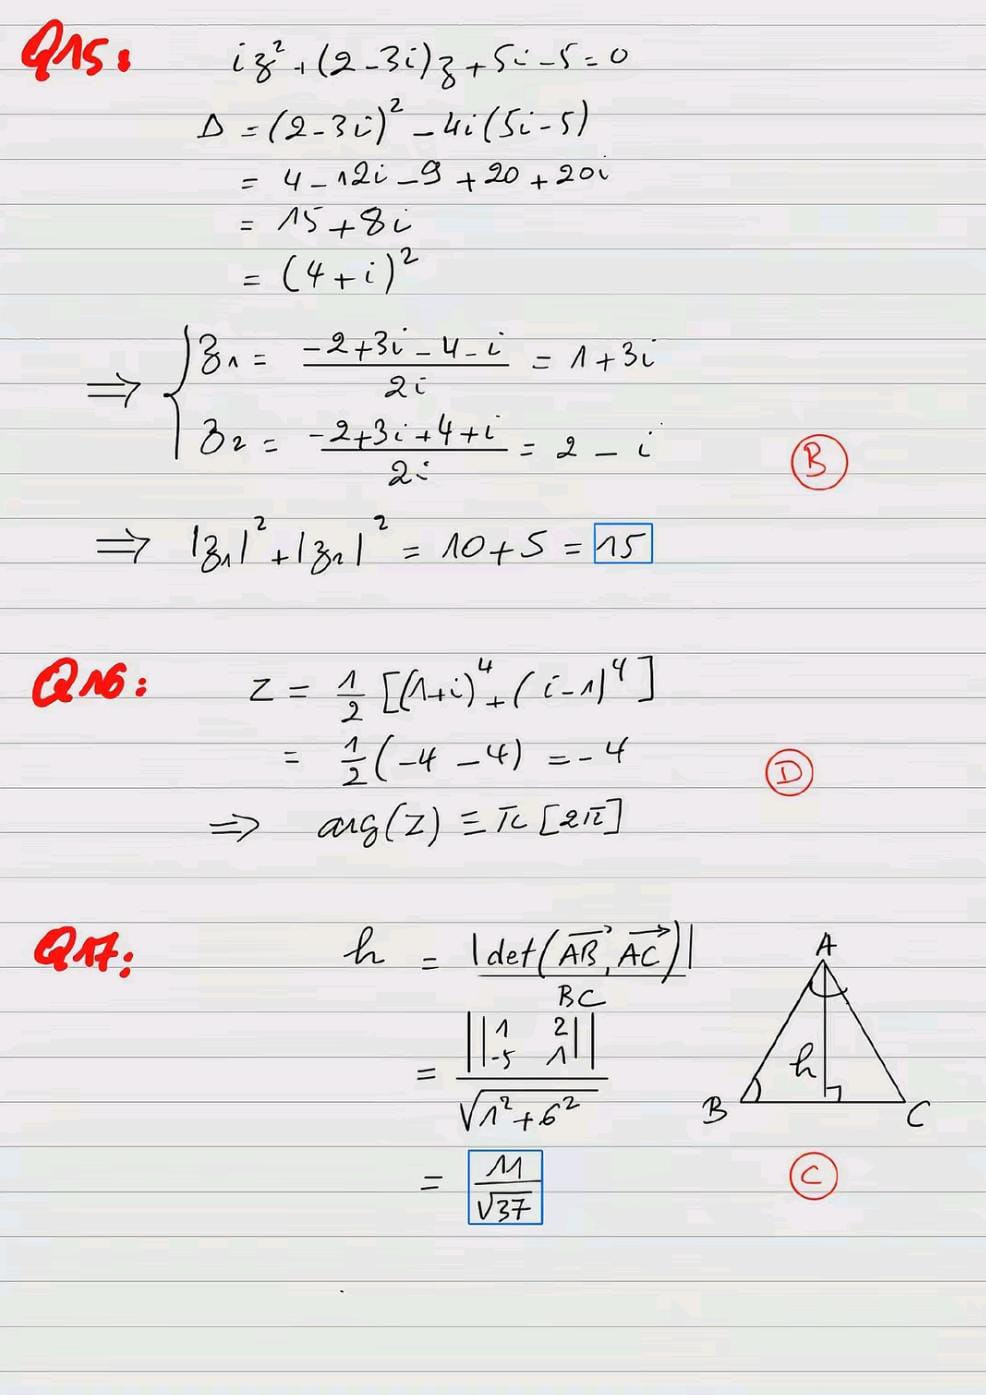 Q15: iz² + (2-3i)z + 5i - 5 = 0
Δ = (2-3i)² - 4i(5i-5)
= 4 - 12i - 9 + 20 + 20i
= 15 + 8i
= (4+i)²
⇒ { z₁ = (-2+3i-4-i)/(2i) = 1+3i
z₂ = (-2+3i+4+i)/(2i) = 2 - i
B
⇒ |z₁|² + |z₂|² = 10 + 5 = 15
Q16: Z = 1/2 [(1+i)⁴ + (i-1)⁴]
= 1/2 (-4 - 4) = -4
D
⇒ arg(Z) ≡ π [2π]
Q17: h = |det(AB, AC)| / BC
= ||1 2 ; -5 1|| / √(1²+6²)
= 11/√37
A
h
B C
C